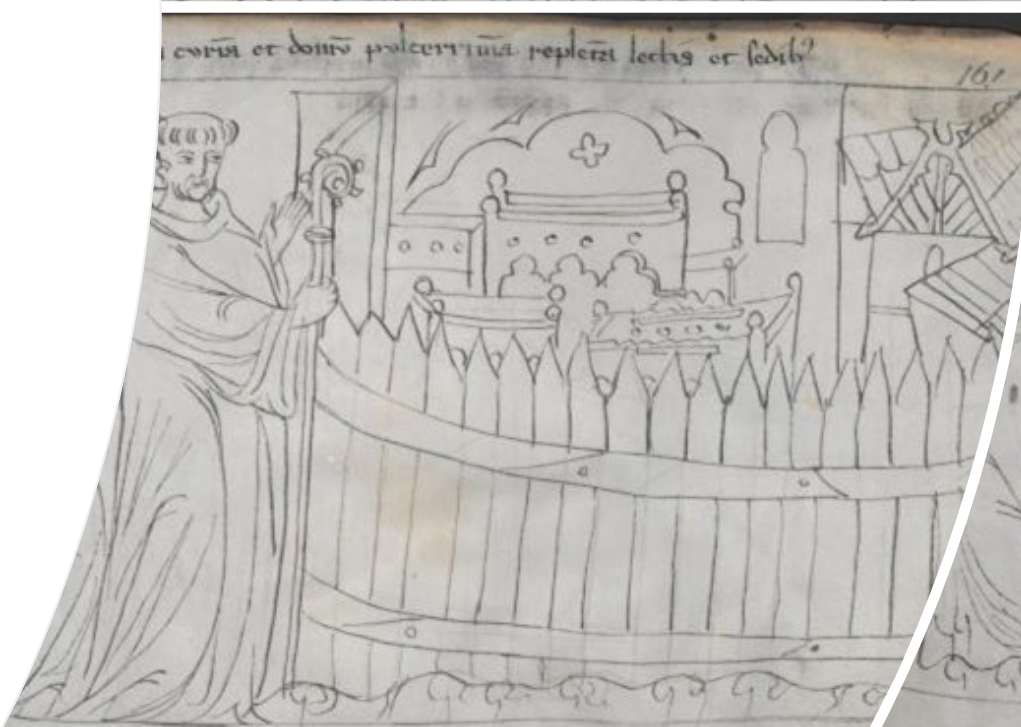 curiā et domū pulcerrimā repletā lectis et sedibꝰ
161